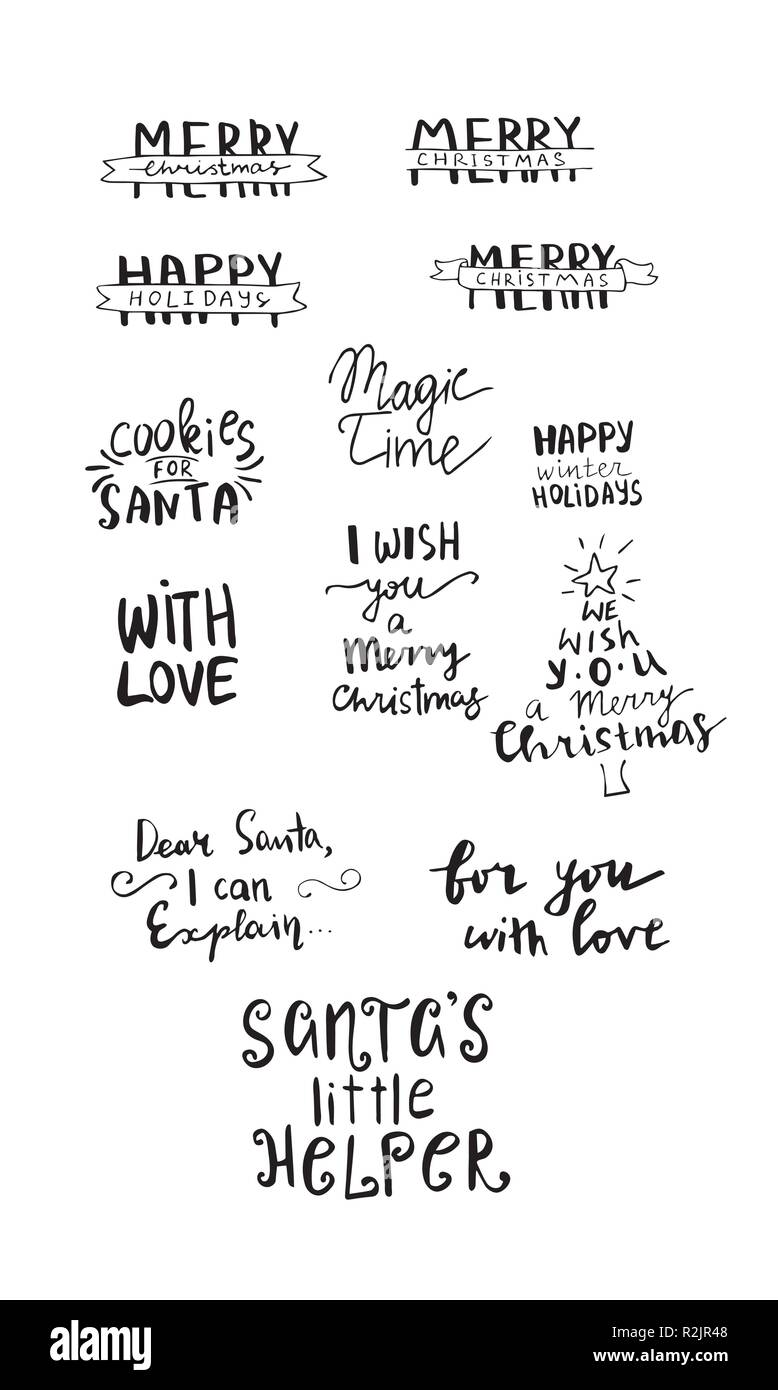 MERRY
Christmas
MERRY
CHRISTMAS
HAPPY
HOLIDAYS
MERRY
CHRISTMAS
Magic
Time
Cookies
FOR
SANTA
HAPPY
winter
HOLIDAYS
I WISH
you
a
Merry
Christmas
WITH
LOVE
WE
wish
y.o.u
a Merry
Christmas
Dear Santa,
I can
Explain...
for you
with love
SANTA'S
little
HELPER
alamy
Image ID: R2JR48
www.alamy.com